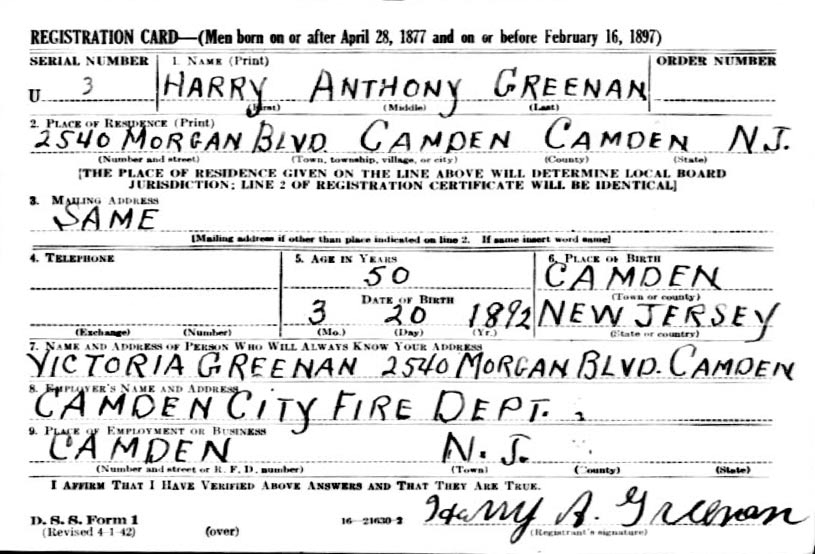 REGISTRATION CARD—(Men born on or after April 28, 1877 and on or before February 16, 1897)
SERIAL NUMBER 1. NAME (Print) ORDER NUMBER
U 3 HARRY ANTHONY GREENAN
(First) (Middle) (Last)
2. PLACE OF RESIDENCE (Print)
2540 MORGAN BLVD. CAMDEN CAMDEN N.J.
(Number and street) (Town, township, village, or city) (County) (State)
[THE PLACE OF RESIDENCE GIVEN ON THE LINE ABOVE WILL DETERMINE LOCAL BOARD
JURISDICTION; LINE 2 OF REGISTRATION CERTIFICATE WILL BE IDENTICAL]
3. MAILING ADDRESS
SAME
[Mailing address if other than place indicated on line 2. If same insert word same]
4. TELEPHONE 5. AGE IN YEARS 6. PLACE OF BIRTH
50 CAMDEN
DATE OF BIRTH (Town or county)
3 20 1892 NEW JERSEY
(Exchange) (Number) (Mo.) (Day) (Yr.) (State or country)
7. NAME AND ADDRESS OF PERSON WHO WILL ALWAYS KNOW YOUR ADDRESS
VICTORIA GREENAN 2540 MORGAN BLVD. CAMDEN
8. EMPLOYER'S NAME AND ADDRESS
CAMDEN CITY FIRE DEPT.
9. PLACE OF EMPLOYMENT OR BUSINESS
CAMDEN N.J.
(Number and street or R. F. D. number) (Town) (County) (State)
I AFFIRM THAT I HAVE VERIFIED ABOVE ANSWERS AND THAT THEY ARE TRUE.
D. S. S. Form 1 Harry A. Greenan
(Revised 4-1-42) (over) 16—21630-2 (Registrant's signature)